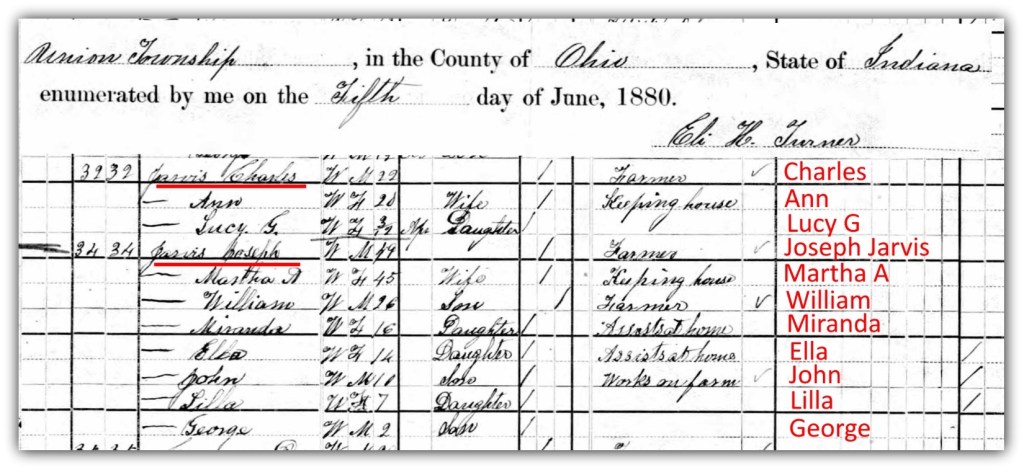 Union Township , in the County of Ohio , State of Indiana
enumerated by me on the Fifth day of June, 1880.
Eli H. Turner
Jarvis Charles W M 22 / Farmer ✓ Charles
— Ann W F 20 Wife / Keeping house Ann
— Lucy G. W F Daughter / Lucy G
34 34 Jarvis Joseph W M 49 / Farmer ✓ Joseph Jarvis
— Martha A W F 45 Wife / Keeping house Martha A
— William W M 26 Son / Farmer ✓ William
— Miranda W F 16 Daughter / Assists at home Miranda
— Ella W F 14 Daughter / Assists at home Ella /
— John W M 10 Son / Works on farm ✓ John /
— Lilla W F 7 Daughter / Lilla /
— George W M 2 Son / George